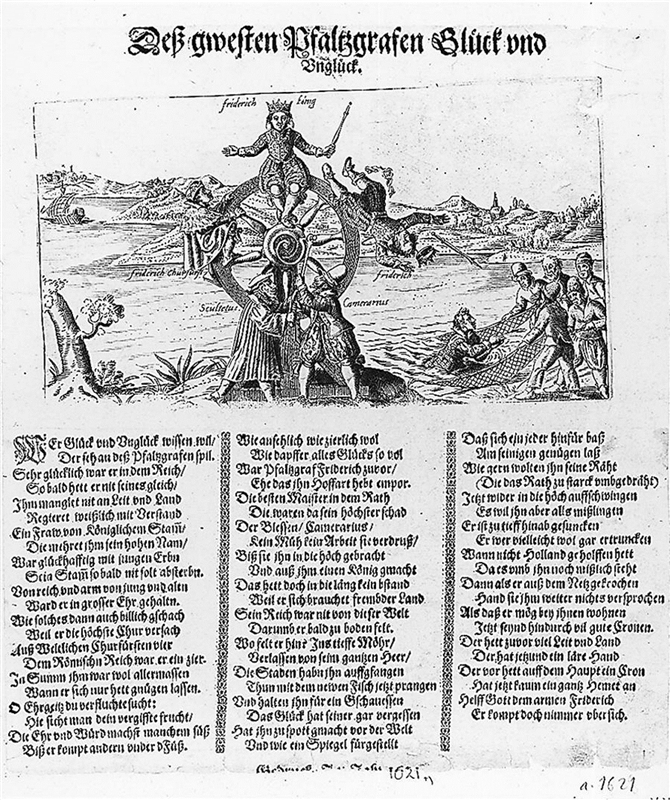 Deß gwesten Pfaltzgrafen Glück vnd
Vnglück.
friderich king
friderich Churfürst
friderich
Scultetus
Camerarius
WEr Glück vnd Vnglück wissen wil/
Der schau deß Pfaltzgrafen spil.
Sehr glücklich war er in dem Reich/
So bald hett er nit seines gleich/
Ihm manglet nit an Leit vnd Land
Regieret weißlich mit Verstand
Ein Fraw von Königlichem Stam̃/
Die mehret ihm sein hohen Nam/
War glückhafftig mit jungen Erbn
Sein Stam̃ so bald nit solt absterbn.
Von reich vnd arm von jung vnd altn
Ward er in grosser Ehr gehaltn.
Wie solches dann auch billich gschach
Weil er die höchste Chur versach
Auß Weltlichen Churfürsten vier
Dem Römischn Reich war er ein zier.
In Summ jhm war wol allermassen
Wann er sich nur hett gnügen lassen.
O Ehrgeitz du verfluchte sucht:
Hie sieht man dein vergiffte frucht/
Die Ehr vnd Würd machst manchem süß
Biß er kompt andern vnder d'Füß.
Wie ansehlich wie zierlich wol
Wie dapffer alles Glücks so vol
War Pfaltzgraf Friderich zuvor/
Ehe das jhn Hoffart hebt empor.
Die besten Maister in dem Rath
Die waren da sein höchster schad
Der Blessen/ Camerarius/
Kein Müh kein Arbeit sie verdruß/
Biß sie jhn in die höch gebracht
Vnd auß jhm einen König gmacht
Das hett doch in die läng kein bstand
Weil er sich brauchet frembder Land
Sein Reich war nit von diser Welt
Darumb er bald zu boden felt.
Wo felt er hin? Ins tieffe Möhr/
Verlassen von seim gantzen Heer/
Die Staden habn jhn auffgfangen
Thun mit dem newen Fisch jetzt prangen
Vnd halten jhn für ein Gschauessen
Das Glück hat seiner gar vergessen
Hat jhn zu spott gmacht vor der Welt
Vnd wie ein Spiegel fürgestellt
Daß sich ein jeder hinfür baß
Am seinigen genügen laß
Wie gern wolten jhn seine Räht
(Die das Rath zu starck vmbgedräht)
Jetzt wider in die höch auffschwingen
Es wil jhn aber als mißlingen
Er ist zu tieff hinab gesuncken
Er wer vielleicht wol gar ertruncken
Wann nicht Holland geholffen hett
Da es vmb jhn noch mißlich steht
Dann als er auß dem Netz gekrochen
Hand sie jhm weiter nichts versprochen
Als daß er mög bey jhnen wohnen
Jetzt seynd hindurch vil gute Cronen.
Der hett zuvor viel Leit vnd Land
Der hat jetzund ein läre Hand
Der vor hett auff dem Haupt ein Cron
Hat jetzt kaum ein gantz Hemet an
Helff Gott dem armen Friderich
Er kompt doch nimmer vbersich.
1621.
a. 1621